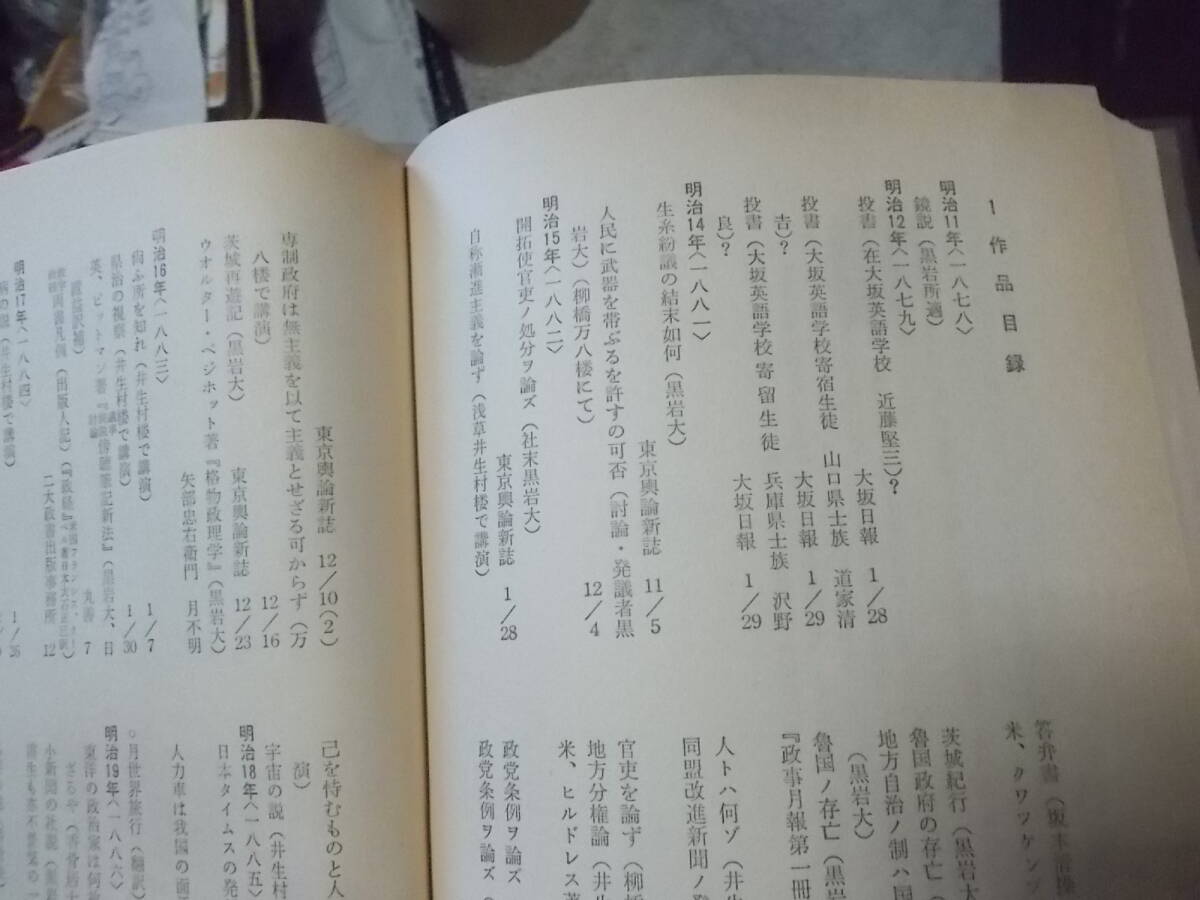 1 作品目録
明治11年〈一八七八〉
鏡説（黒岩所適）
明治12年〈一八七九〉
投書（在大坂英語学校　近藤堅三）？
大坂日報　1／28
投書（大坂英語学校寄宿生徒　山口県士族　道家清
吉）？　大坂日報　1／29
投書（大坂英語学校寄留生徒　兵庫県士族　沢野
良）？　大坂日報　1／29
明治14年〈一八八一〉
生糸紛議の結末如何（黒岩大）
東京輿論新誌　11／5
人民に武器を帯ぶるを許すの可否（討論・発議者黒
岩大）（柳橋万八楼にて）　12／4
明治15年〈一八八二〉
開拓使官吏ノ処分ヲ論ズ（社末黒岩大）
東京輿論新誌　1／28
自称漸進主義を論ず（浅草井生村楼で講演）
東京輿論新誌　12／10(2)
専制政府は無主義を以て主義とせざる可からず（万
八楼で講演）　12／16
茨城再遊記（黒岩大）　東京輿論新誌　12／23
ウオルター・ベジホット著『格物政理学』（黒岩大）
矢部忠右衛門　月不明
明治16年〈一八八三〉
向ふ所を知れ（井生村楼で講演）　1／7
県治の視察（井生村楼で講演）　1／30
英、ピットマン著『
傍聴筆記新法』（黒岩大、日
益沢補）　丸善　7
（出版人記）
二大政書出版事務所　12
明治17年〈一八八四〉
の説（井生村楼で講演）　1／26
答弁書（坂木清操
米、クワッケンブ
茨城紀行（黒岩大
魯国政府の存亡（
地方自治ノ制ハ国
（黒岩大）
魯国ノ存亡（黒岩
『政事月報第一冊
人トハ何ゾ（井生
同盟改進新聞ノ発
官吏を論ず（柳橋
地方分権論（井生
米、ヒルドレス著
政党条例ヲ論ズ
政党条例ヲ論ズ（
己を恃むものと人
演）
宇宙の説（井生村
明治18年〈一八八五〉
日本タイムスの発
人力車は我国の面
○月世界旅行（翻訳）
明治19年〈一八八六〉
東洋の政治家は何
ざらや（香骨居士
小新聞の社説（黒岩